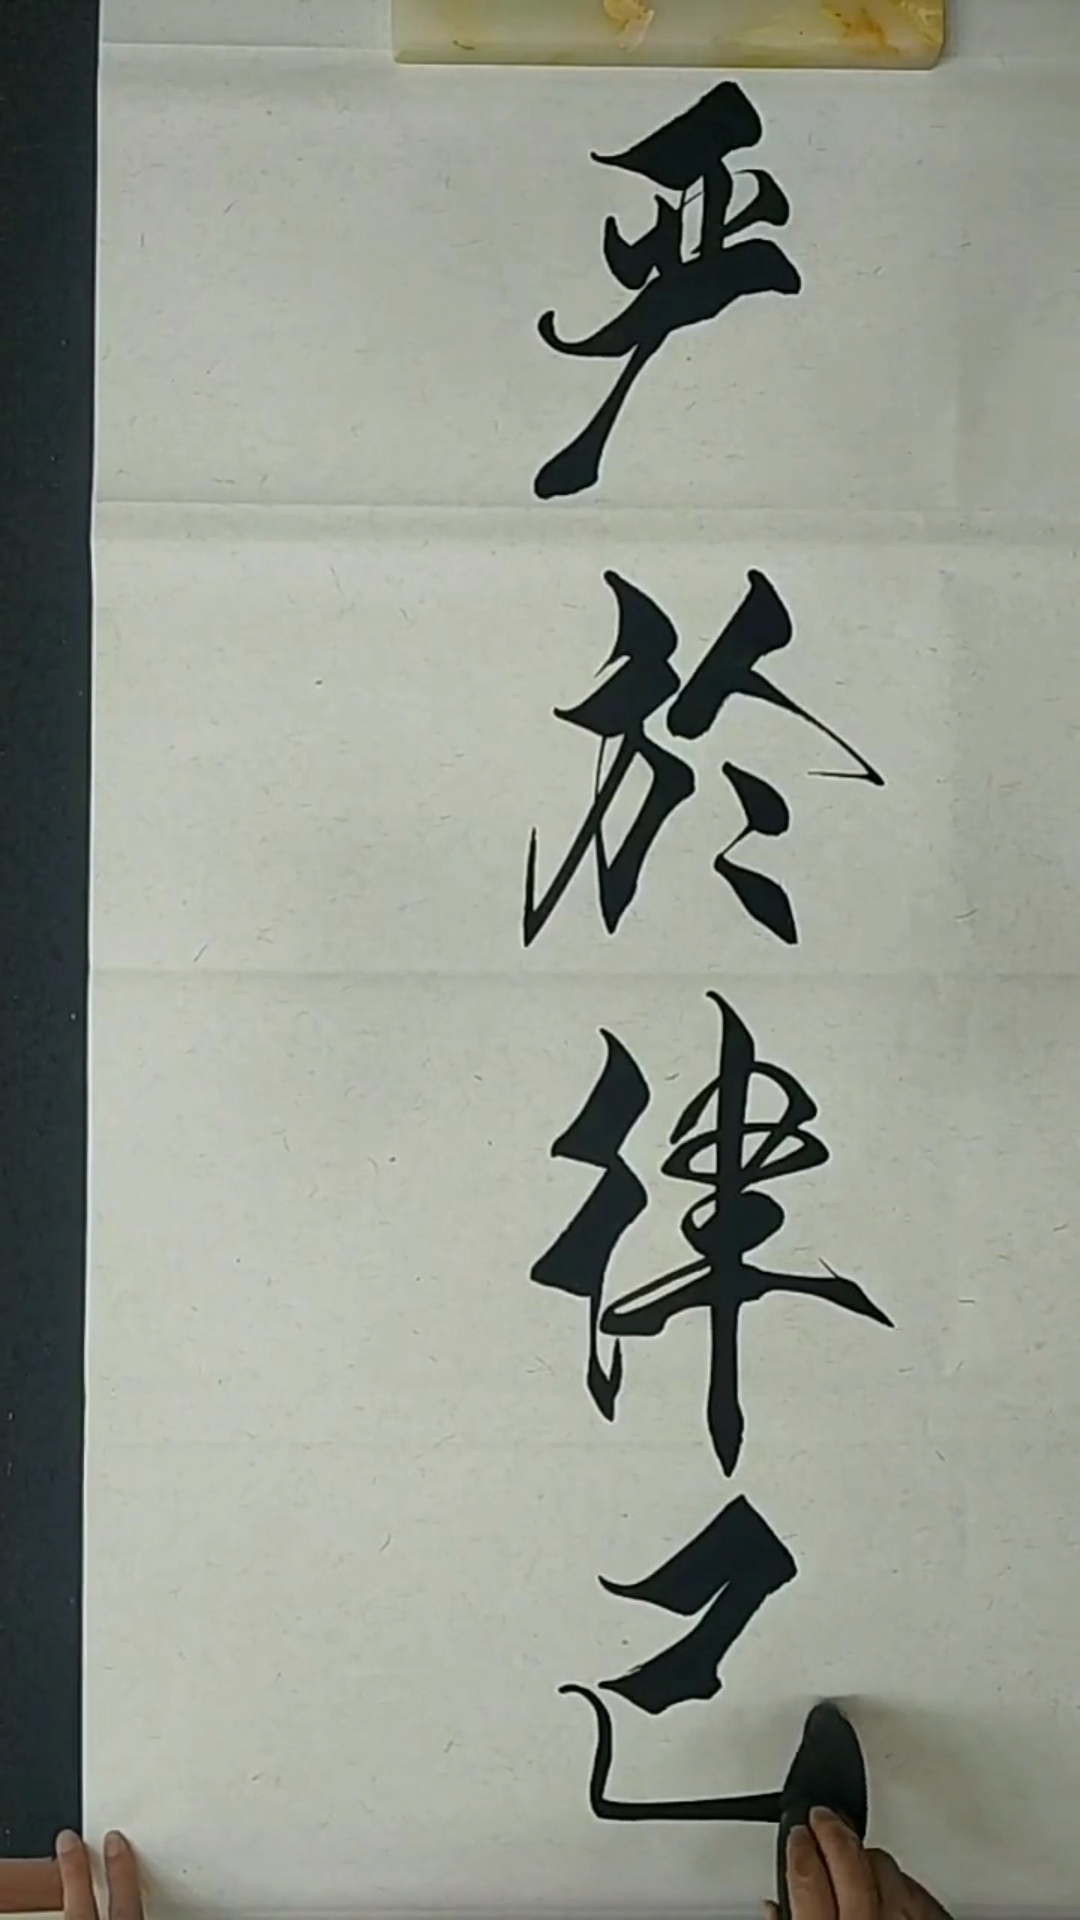 严於律己